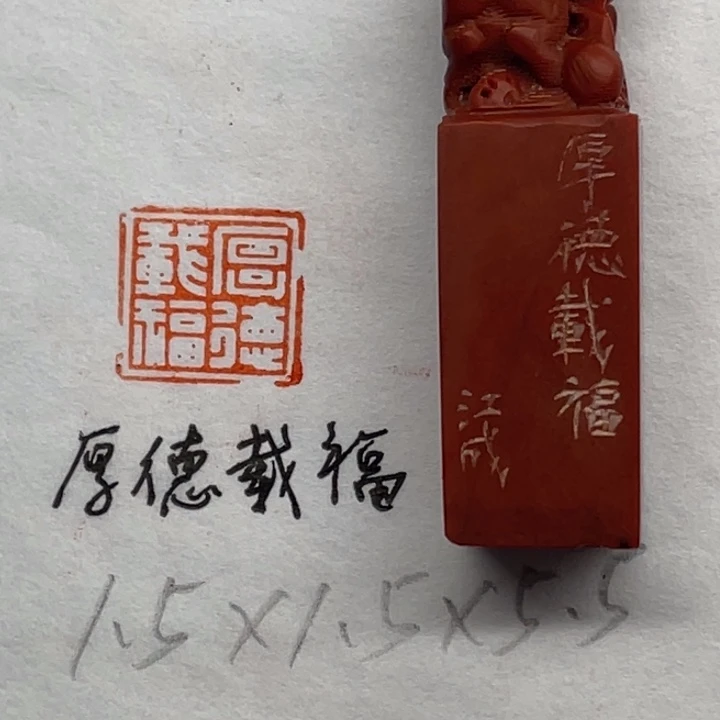 厚德載福
厚德載福
1.5×1.5×5.5
厚德載福
江成